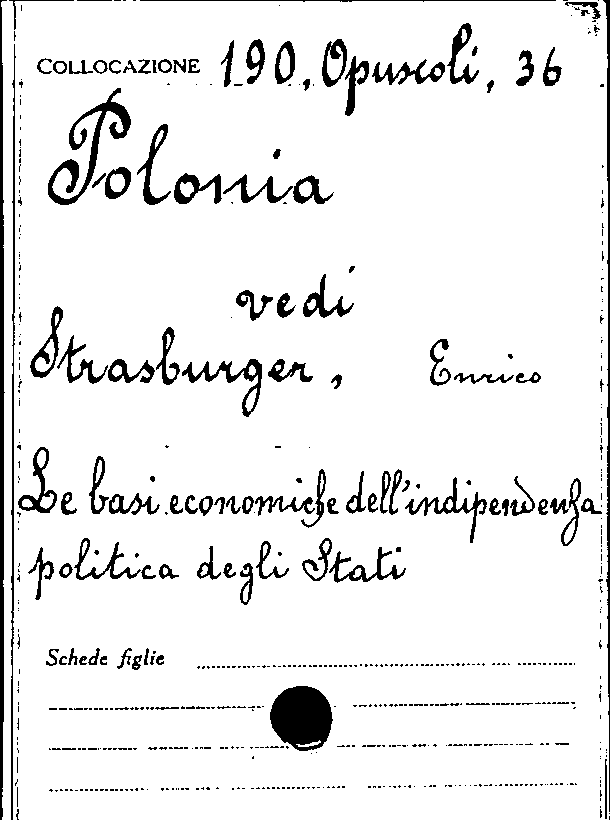 COLLOCAZIONE 190, Opuscoli, 36
Polonia
vedi
Strasburger, Enrico
Le basi economiche dell'indipendenza
politica degli Stati
Schede figlie